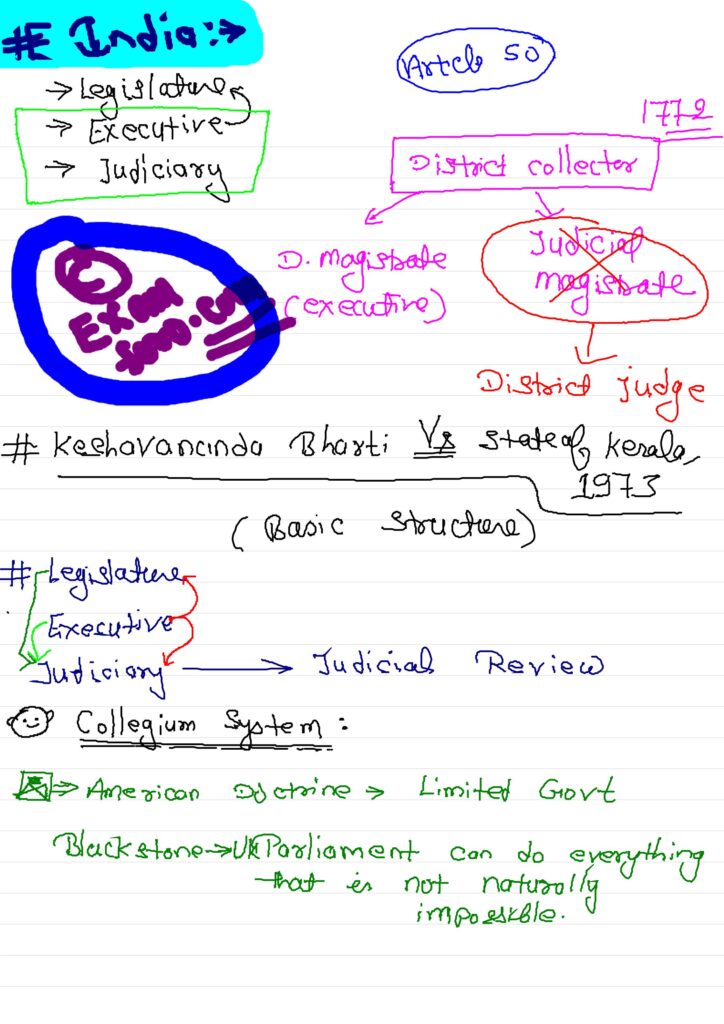 # India:→
Article 50
→ Legislature
→ Executive
→ Judiciary
1772
District collector
D. magistrate
(executive)
Judicial
magistrate
District judge
©
Exam
# Keshavananda Bharti Vs State of Kerala,
1973
(Basic Structure)
# Legislature
Executive
Judiciary → Judicial Review
Collegium System :
⇒ American Doctrine → Limited Govt
Blackstone → UK Parliament can do everything
that is not naturally
impossible.